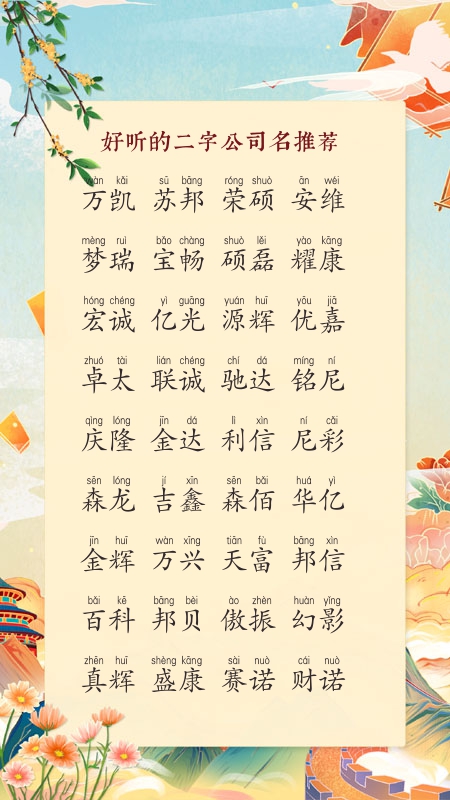 好听的二字公司名推荐
wàn kǎi sū bāng róng shuò ān wéi
万凯 苏邦 荣硕 安维
mèng ruì bǎo chàng shuò lěi yào kāng
梦瑞 宝畅 硕磊 耀康
hóng chéng yì guāng yuán huī yōu jiā
宏诚 亿光 源辉 优嘉
zhuó tài lián chéng chí dá míng ní
卓太 联诚 驰达 铭尼
qìng lóng jīn dá lì xìn ní cǎi
庆隆 金达 利信 尼彩
sēn lóng jí xīn sēn bǎi huá yì
森龙 吉鑫 森佰 华亿
jīn huī wàn xīng tiān fù bāng xìn
金辉 万兴 天富 邦信
bǎi kē bāng bèi ào zhèn huàn yǐng
百科 邦贝 傲振 幻影
zhēn huī shèng kāng sài nuò cái nuò
真辉 盛康 赛诺 财诺